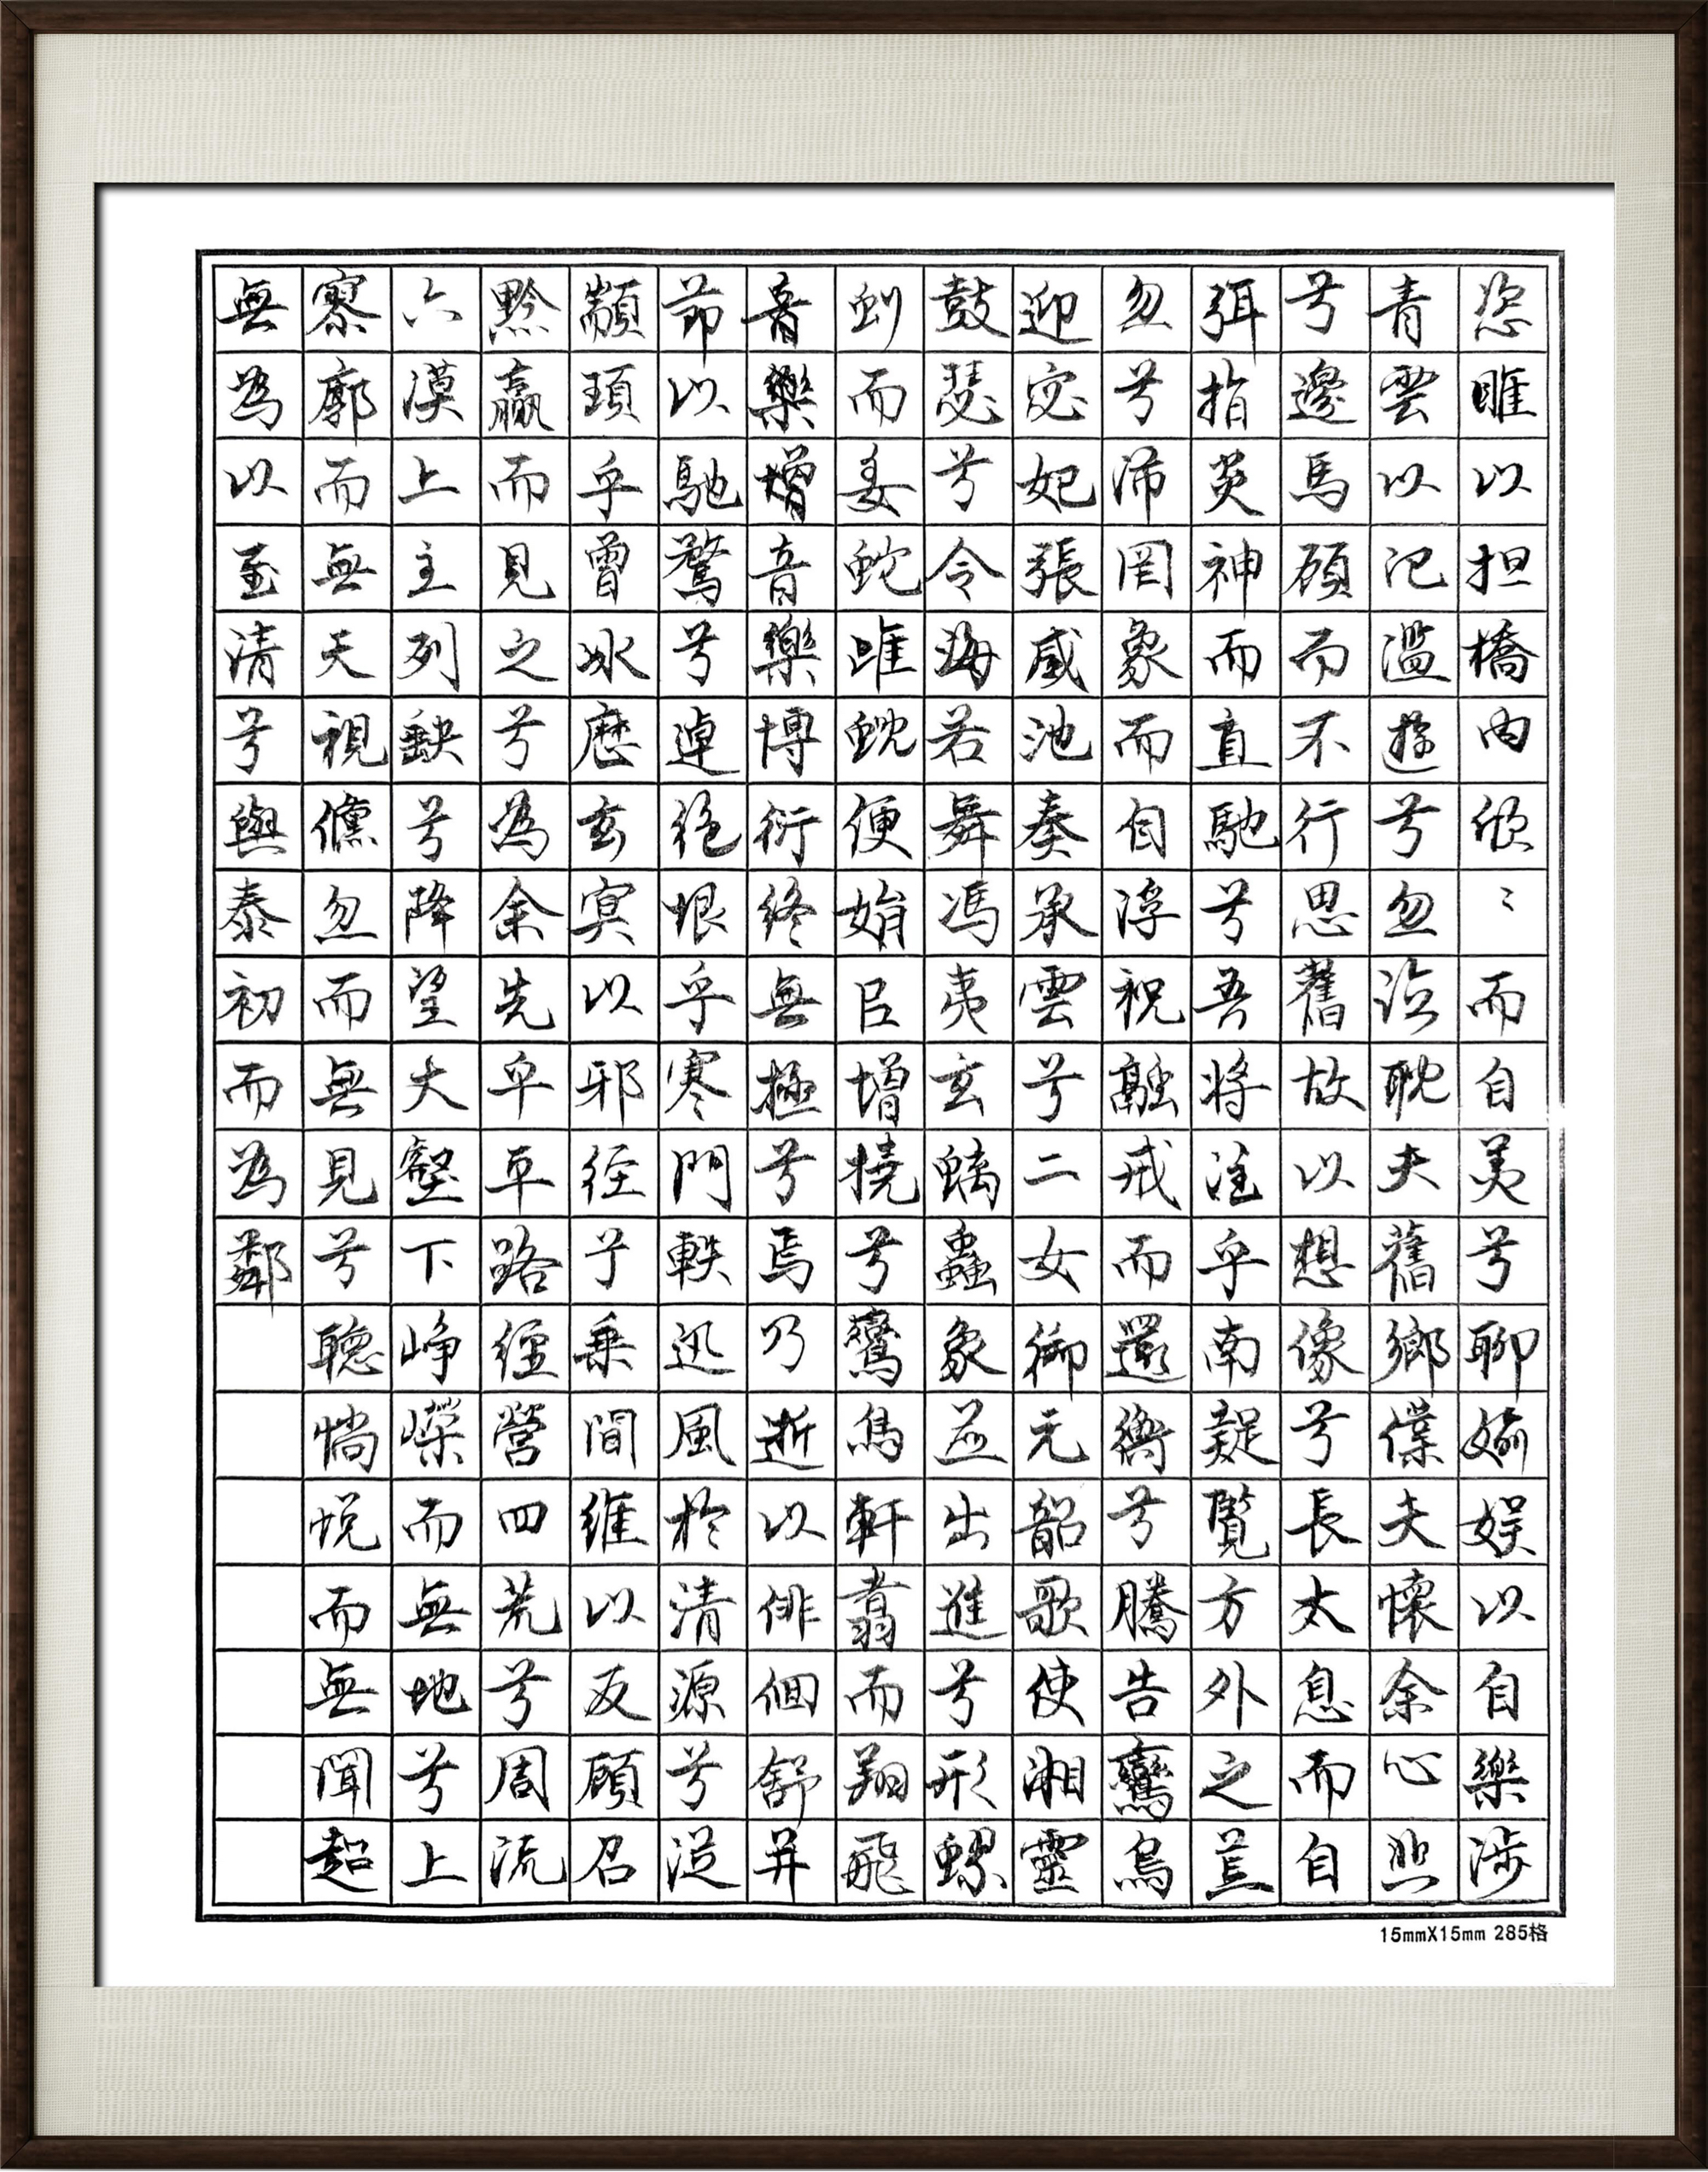 恣睢以担橋内欣〻而自美兮聊媮娱以自樂涉
青雲以汜濫遊兮忽臨睨夫舊鄉僕夫懷余心悲
兮邊馬顧而不行思舊故以想像兮長太息而自
弭指炎神而直馳兮吾將往乎南疑覽方外之荒
忽兮沛罔象而自浮祝融戒而還衡兮騰告鸞鳥
迎宓妃張咸池奏承雲兮二女御元韶歌使湘靈
鼓瑟兮令海若舞馮夷玄螭蟲象並出進兮形蟉
虯而委蛇雌蜺便娟以增撓兮鸞鳥軒翥而翔飛
音樂增音樂博衍終無極兮焉乃逝以徘徊舒并
節以馳騖兮逴絕垠乎寒門軼迅風於清源兮從
顓頊乎曾冰歷玄冥以邪徑兮乘間維以反顧召
黔贏而見之兮為余先乎平路經營四荒兮周流
六漠上至列缺兮降望大壑下崢嶸而無地兮上
寥廓而無天視儵忽而無見兮聽惝怳而無聞超
無為以至清兮與泰初而為鄰
15mmX15mm 285格